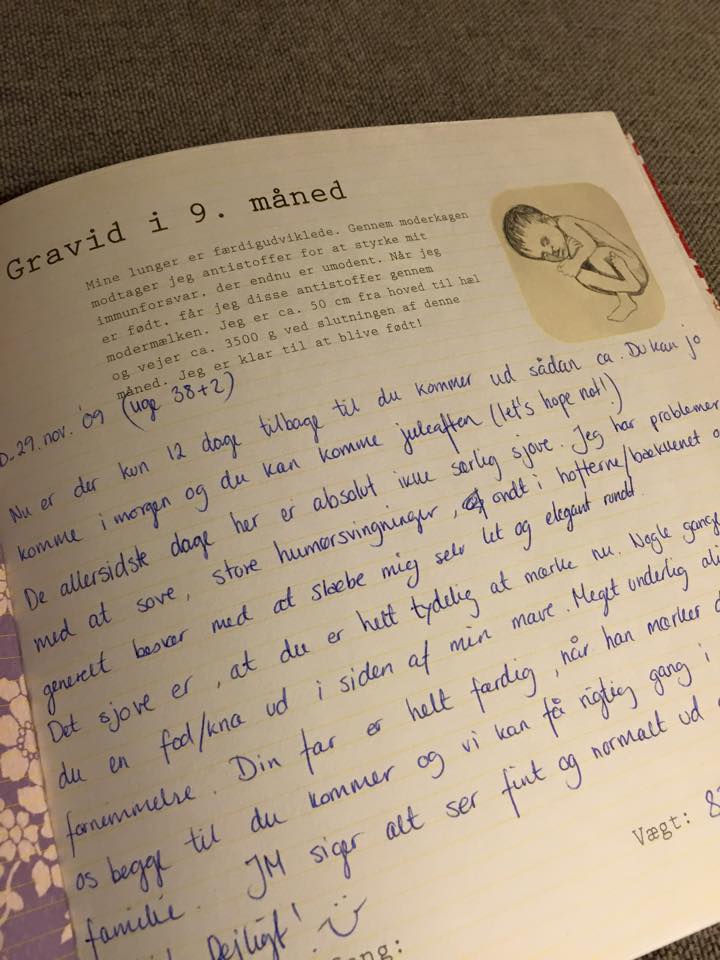 Gravid i 9. måned
Mine lunger er færdigudviklede. Gennem moderkagen
modtager jeg antistoffer for at styrke mit
immunforsvar, der endnu er umodent. Når jeg
er født, får jeg disse antistoffer gennem
modermælken. Jeg er ca. 50 cm fra hoved til hæl
og vejer ca. 3500 g ved slutningen af denne
måned. Jeg er klar til at blive født!
29. nov. '09 (uge 38+2)
Nu er der kun 12 dage tilbage til du kommer ud sådan ca. Du kan jo
komme i morgen og du kan komme juleaften (let's hope not!)
De allersidste dage her er absolut ikke særlig sjove. Jeg har problemer
med at sove, store humørsvingninger, ondt i hofterne/bækkenet
generelt besvær med at slæbe mig selv let og elegant rundt.
Det sjove er, at du er helt tydelig at mærke nu. Nogle gange
du en fod/knæ ud i siden af min mave. Megt underlig
fornemmelse. Din far er helt færdig, når han mærker
os begge til du kommer og vi kan få rigtig gang i
familie. JM siger alt ser fint og normalt ud
Dejligt!
Vægt: 8